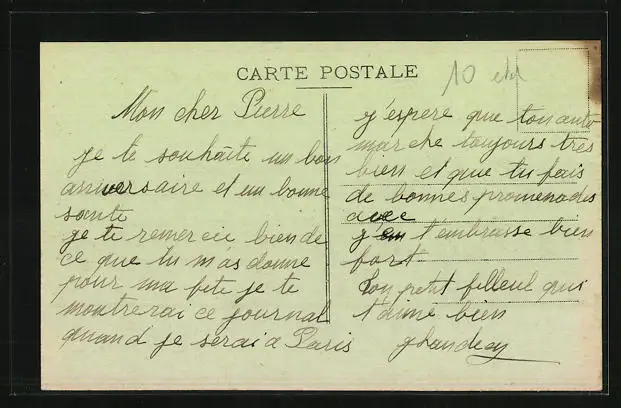 CARTE POSTALE
10
Mon cher Pierre
je te souhaite un bon
anniversaire et un bonne
sante
je te remercie bien de
ce que tu m'as donne
pour ma fete je te
montrerai ce journal
quand je serai a Paris
j'espere que ton auto
marche toujours tres
bien et que tu fais
de bonnes promenades
avec
j' t'embrasse bien
fort
Ton petit filleul qui
t'aime bien